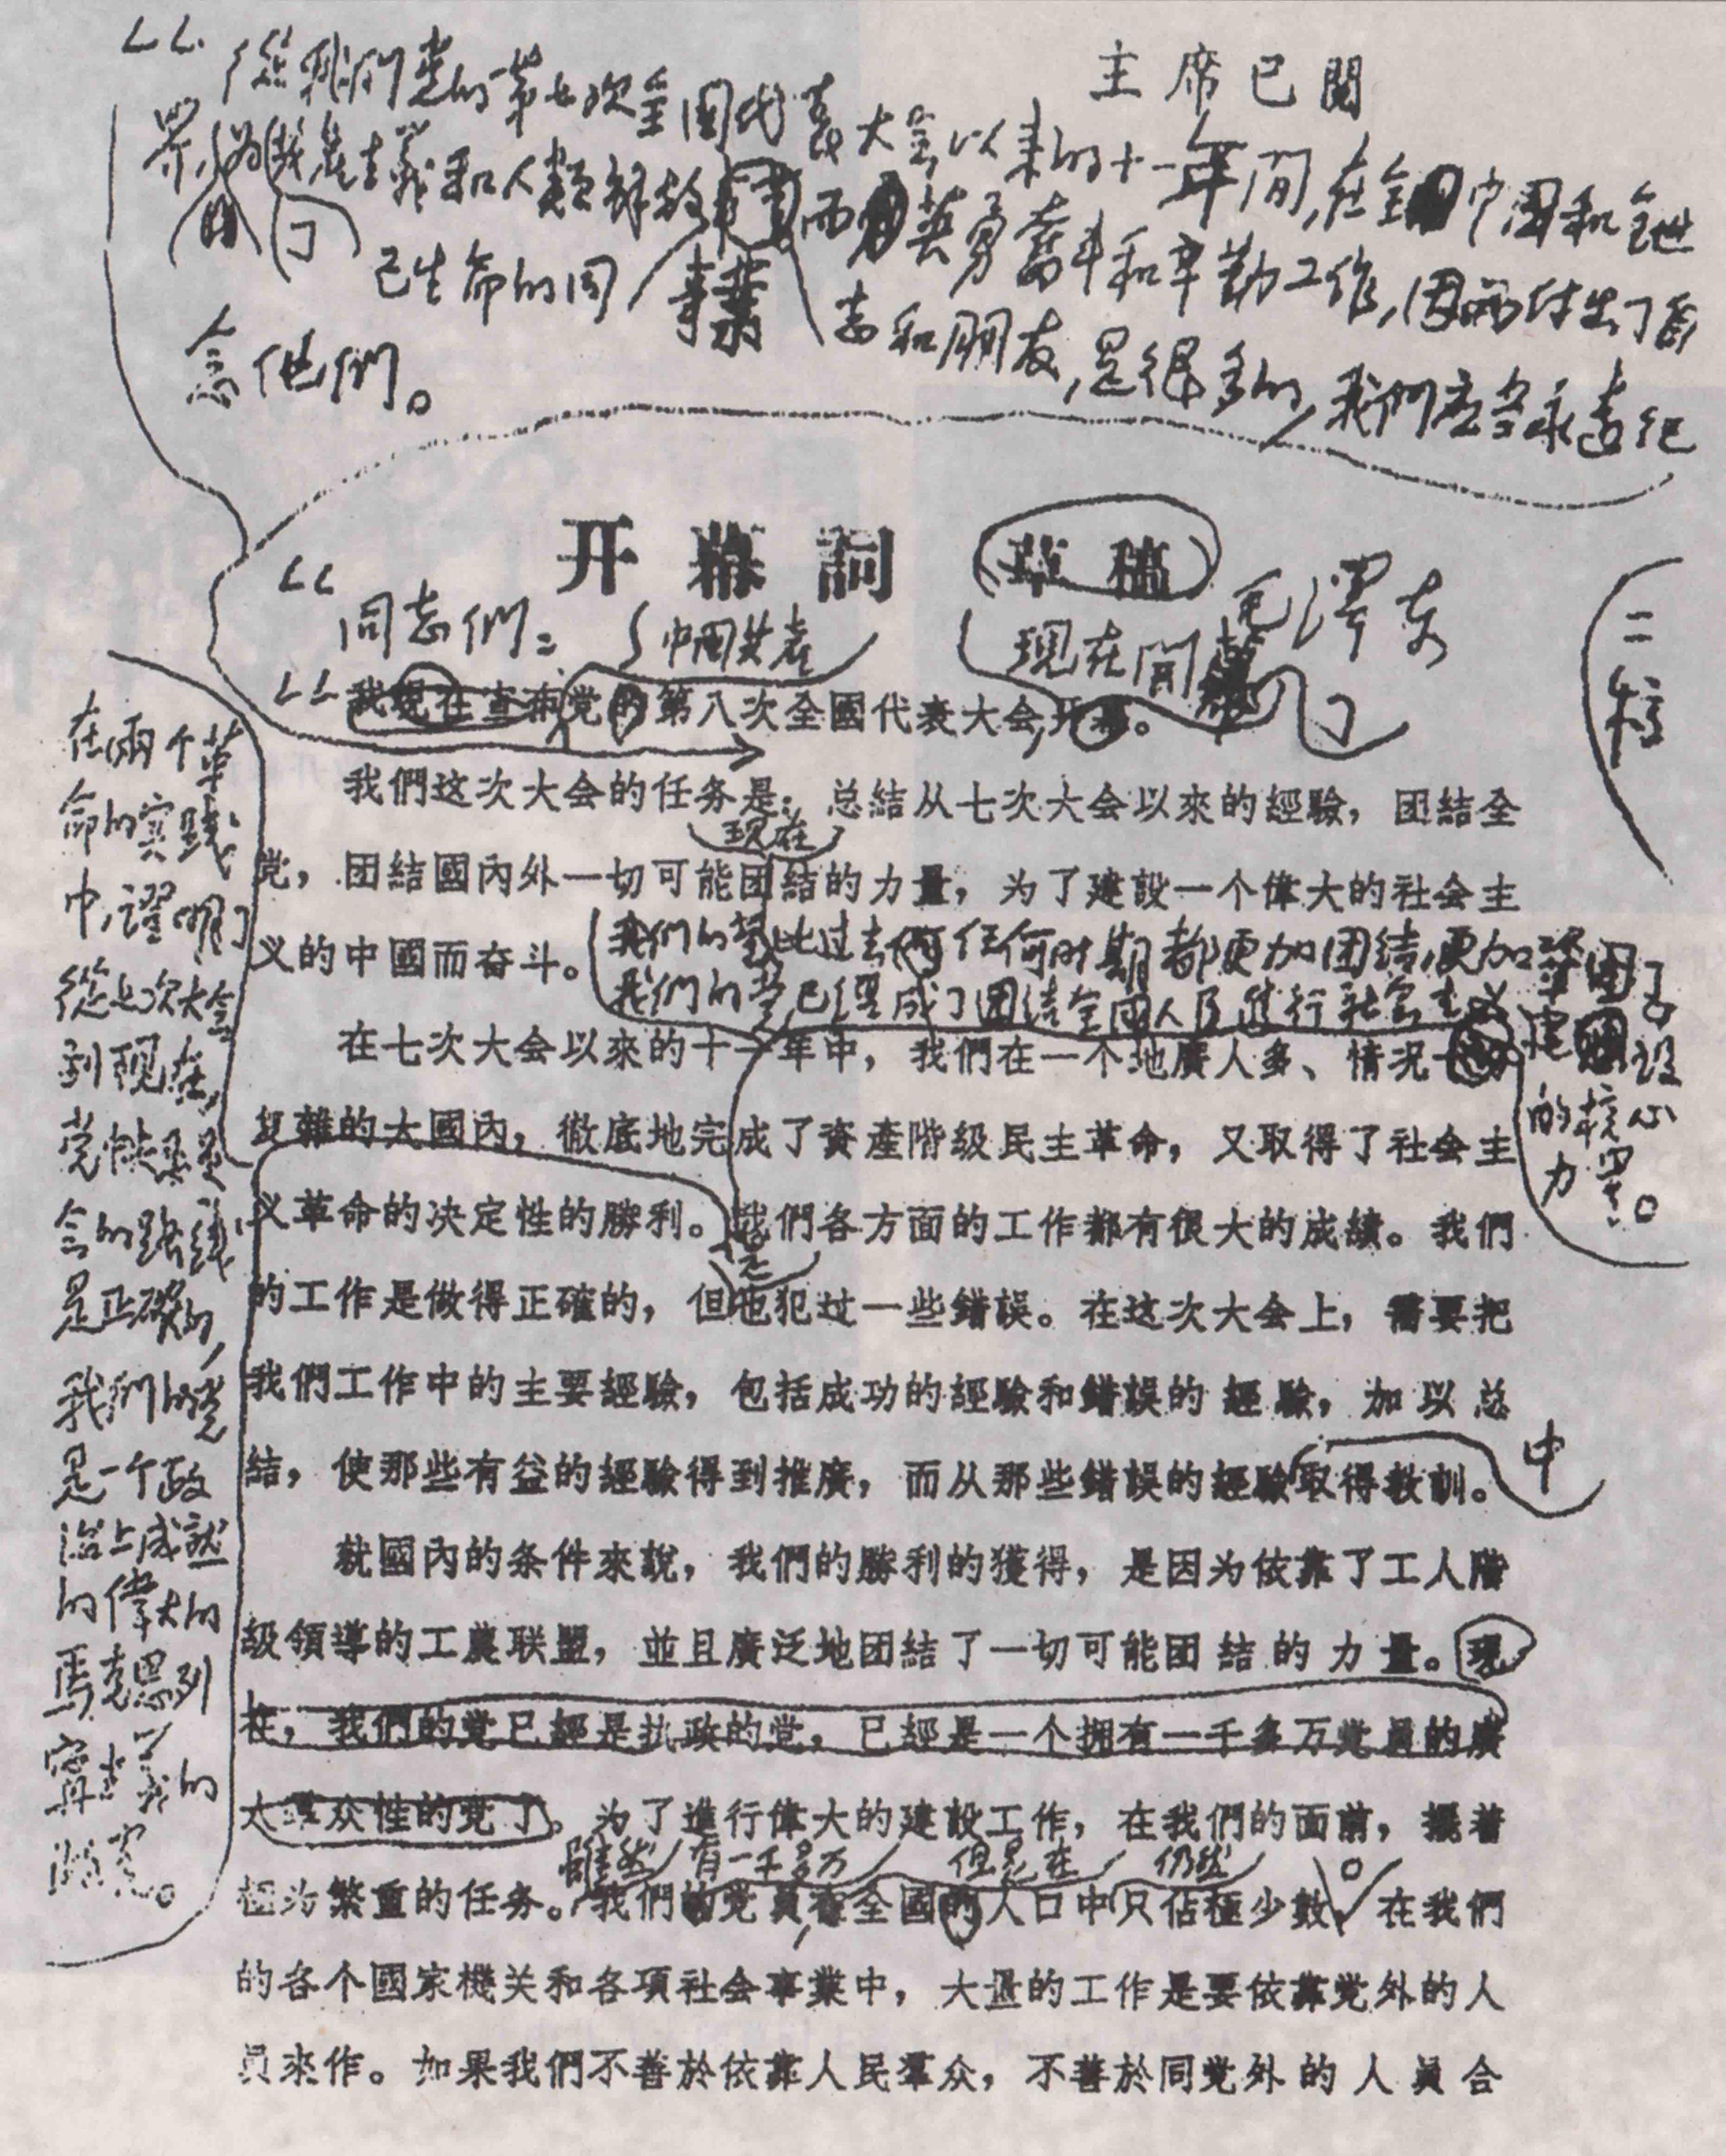 主席已閱
從我們党的第七次全国代表大会以来的十一年间，在全中国和全世
界，为共产主義和人類解放事業而英勇奮斗和辛勤工作，因而付出了自
己生命的同志和朋友，是很多的，我們应当永远纪
念他們。
开幕詞 草稿
毛澤东
二校
同志們：
中国共产
現在開幕了
我現在宣布党的第八次全國代表大会开幕。
我們这次大会的任务是：总結从七次大会以來的經驗，团結全
現在
党，团結國內外一切可能团結的力量，为了建設一个偉大的社会主
义的中國而奋斗。
我们的党比过去任何时期都更加团结，更加巩固了
我们的党已經成了团结全国人民進行社会主义建設
的核心
力量。
在七次大会以來的十一年中，我們在一个地廣人多、情况
复雜的大國內，徹底地完成了資產階級民主革命，又取得了社会主
义革命的决定性的勝利。我們各方面的工作都有很大的成績。我們
的工作是做得正確的，但也犯过一些錯誤。在这次大会上，需要把
我們工作中的主要經驗，包括成功的經驗和錯誤的經驗，加以总
中
結，使那些有益的經驗得到推廣，而从那些錯誤的經驗取得教訓。
就國內的条件來說，我們的勝利的獲得，是因为依靠了工人階
級領導的工農联盟，並且廣泛地团結了一切可能团結的力量。現
在，我們的党已經是执政的党，已經是一个拥有一千多万党員的廣
大羣众性的党了。为了進行偉大的建設工作，在我們的面前，擺着
雖然 有一千多万 但是在 仍然
極为繁重的任务。我們的党員在全國的人口中只佔極少数，在我們
的各个國家機关和各項社会事業中，大量的工作是要依靠党外的人
員來作。如果我們不善於依靠人民羣众，不善於同党外的人員合
在兩个革
命的实践
中，證明了
從七次大会
到现在，
党中央委員
会的路线
是正確的，
我們的党
是一个政
治上成熟
的偉大的
馬克思列
寧主義的
政党。